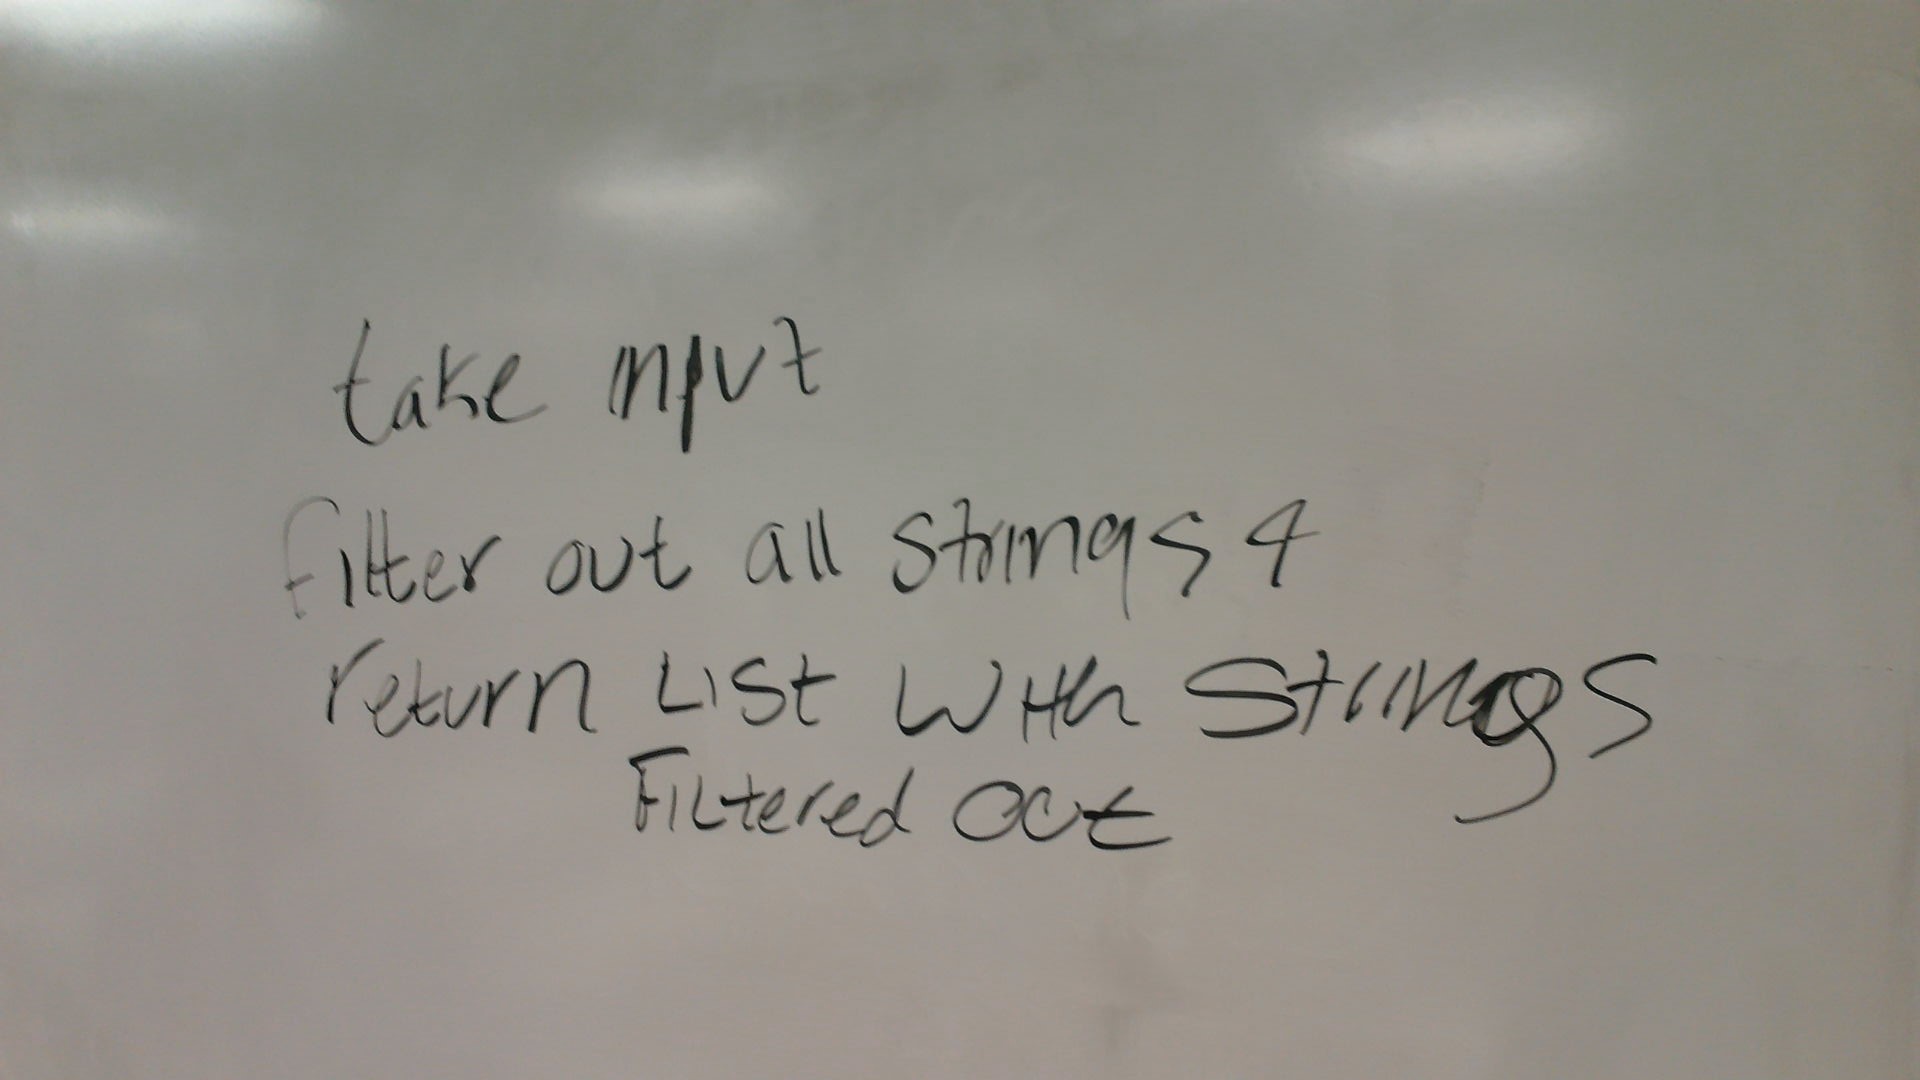 take input
filter out all strings 4
return List With Strings
Filtered out